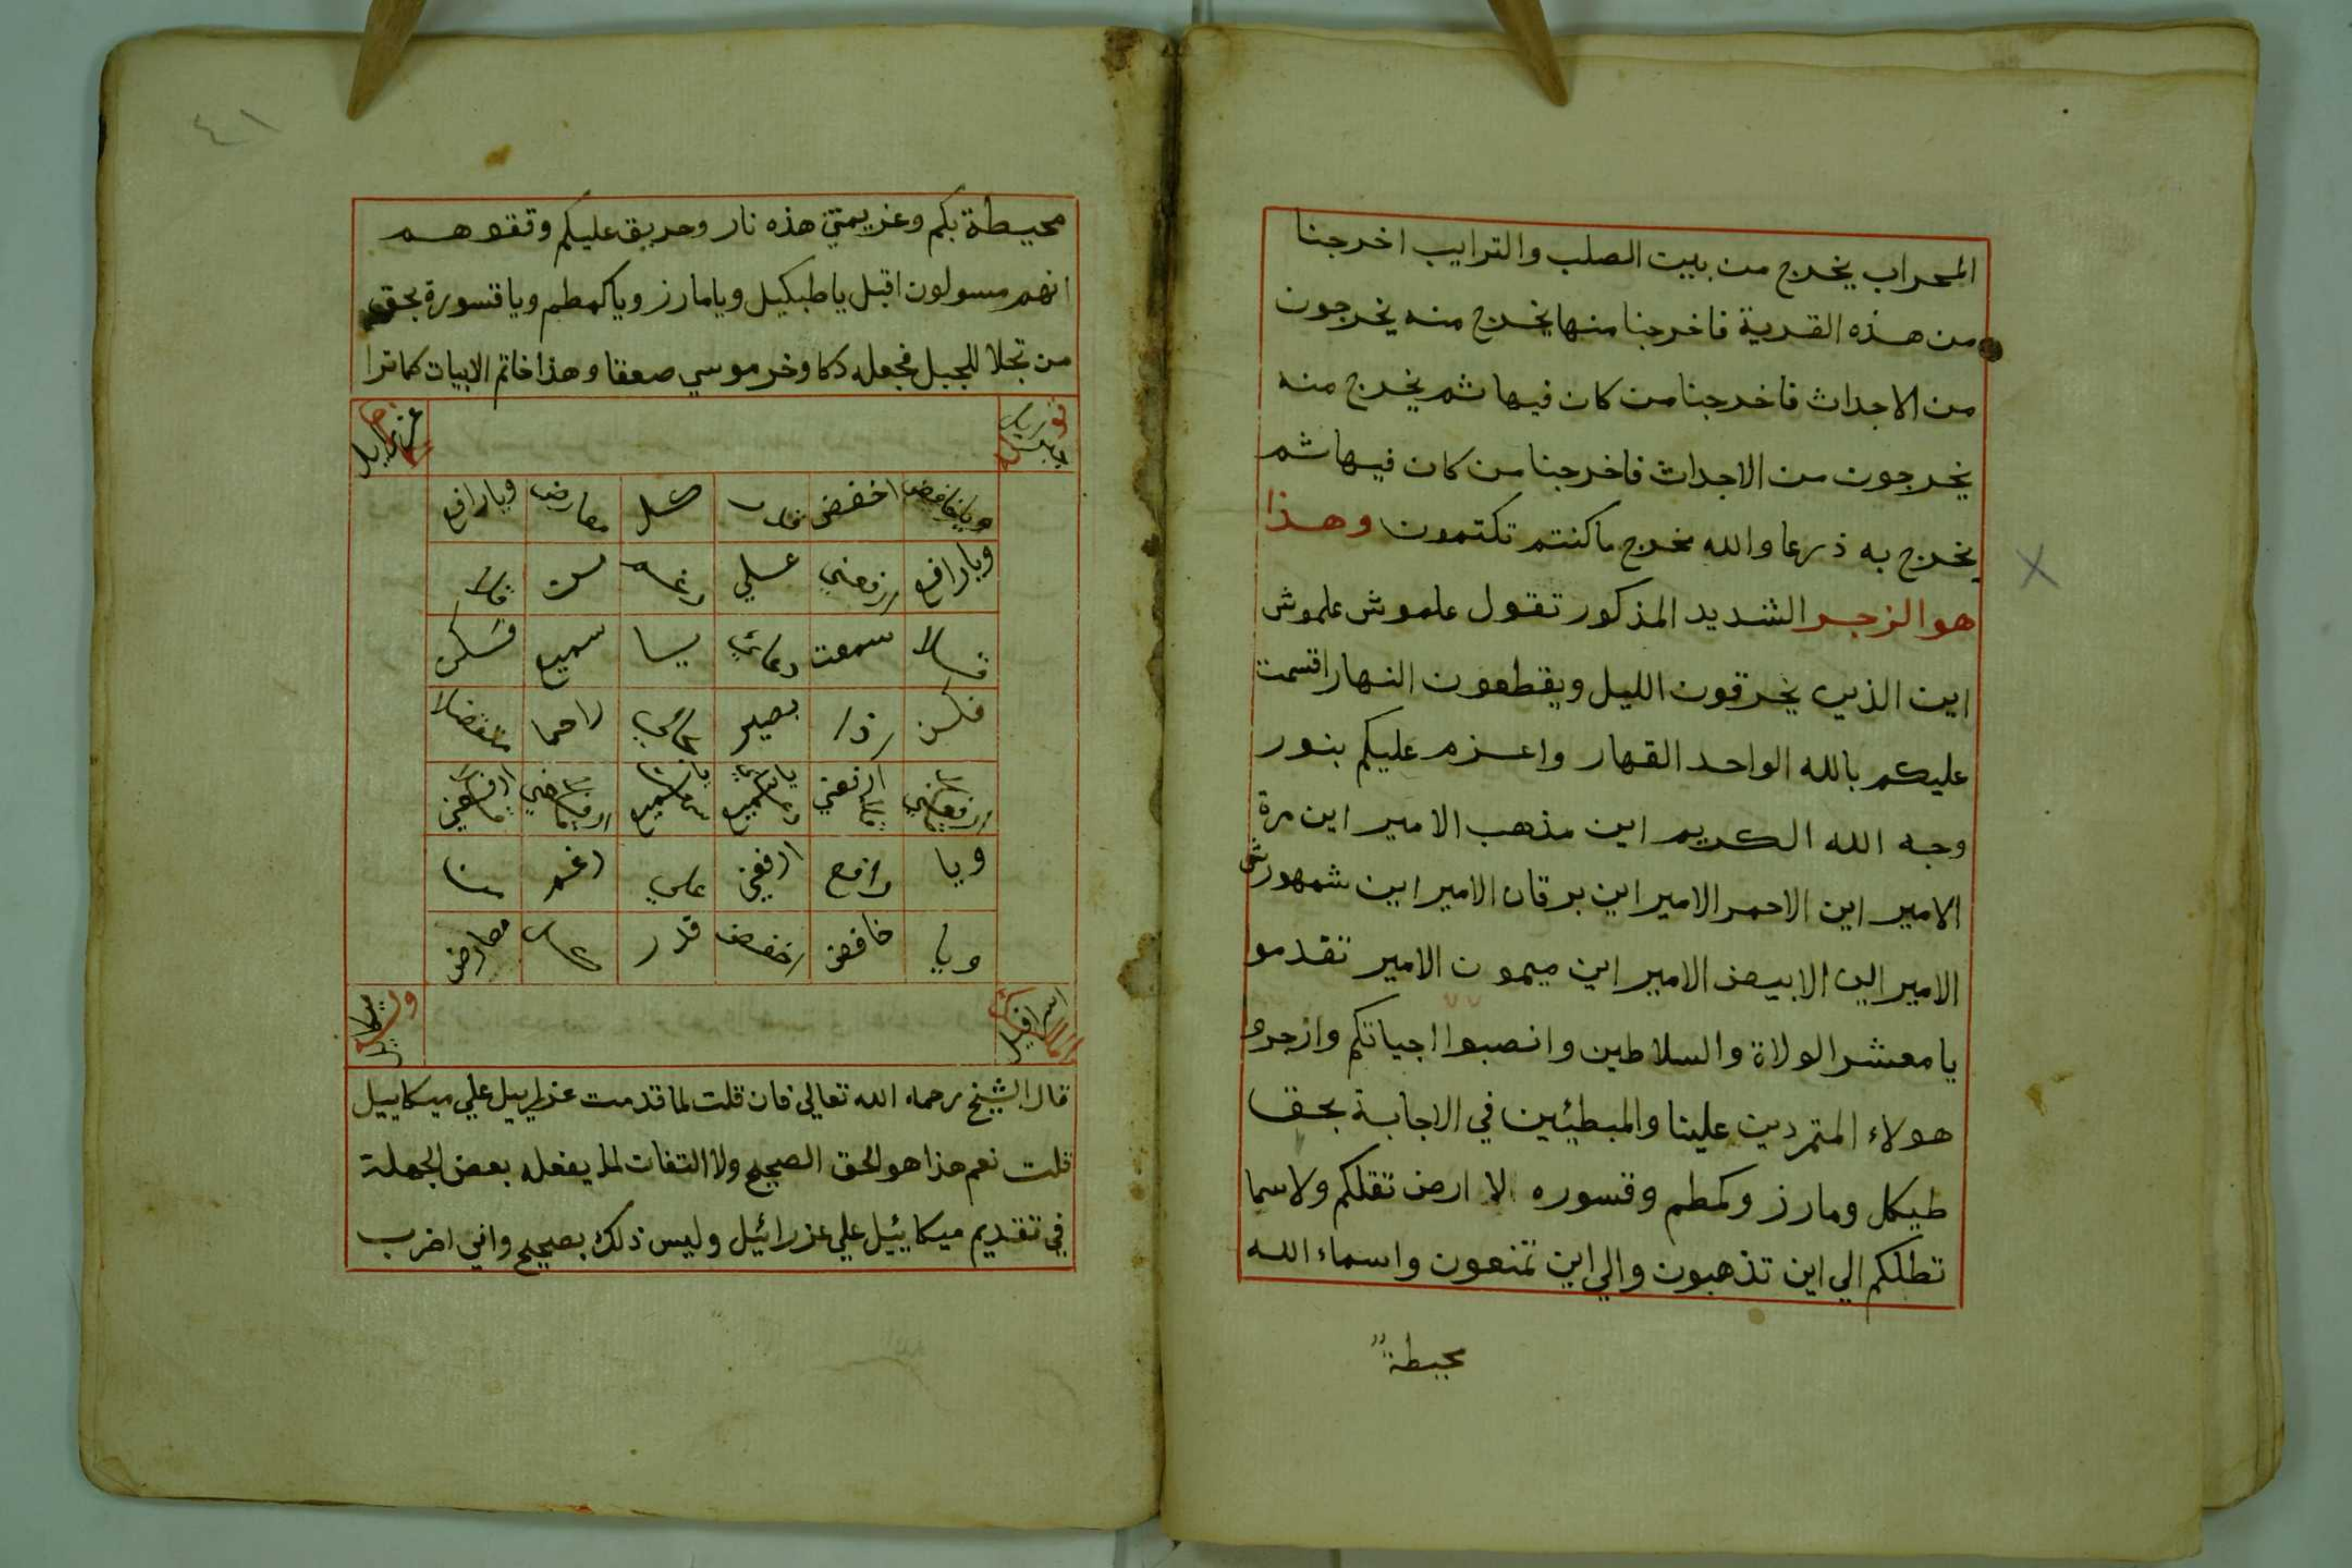 المحراب يخرج من بيت الصلب والترايب اخرجنا
من هذه القرية فاخرجنا منها يخرج منه يخرجون
من الاجداث فاخرجنا من كان فيها ثم يخرج منه
يخرجون من الاجداث فاخرجنا من كان فيها ثم
يخرج به ذرعا والله مخرج ما كنتم تكتمون وهذا
هو الزجر الشديد المذكور تقول علموش علموش
اين الذين يخرقون الليل ويقطعون النهار اقسمت
عليكم بالله الواحد القهار واعزم عليكم بنور
وجه الله الكريم اين مذهب الامير اين مرة
الامير اين الاحمر الامير اين برقان الامير اين شمهورش
الامير اين الابيض الامير اين ميمون الامير تقدمو
يا معشر الولاة والسلاطين وانصبوا اجياتكم وازجرو
هولاء المتمردين علينا والمبطئين في الاجابة بحق
طيكل ومازر وكمطم وقسوره لا ارض تقلكم ولا سما
تظلكم الي اين تذهبون والي اين تمنعون واسماء الله
محيطة
٤١
محيطة بكم وعزيمتي هذه نار وحريق عليكم وقفوهم
انهم مسولون اقبل يا طبكيل ويا مازر ويا كمطم ويا قسورة بحق
من تجلا للجبل فجعله دكا وخر موسي صعقا وهذا خاتم الابيات كما ترا
عزرايل
ويا خافض اخفض معارض ويا رافع
ويا رافع علي
سمعت دعائي سميع فكن
فكن بصير راحما متفضلا
ويا رافع ارفعني علي رغم
ويا خافض اخفض قدر كل معارض
اسرافيل ميكايل
قال الشيخ رحمه الله تعالي فان قلت لما قدمت عزرايل علي ميكاييل
قلت نعم هذا هو الحق الصحيح ولا التفات لما يفعله بعض الجهلة
في تقديم ميكاييل علي عزرائيل وليس ذلك بصحيح واني اضرب